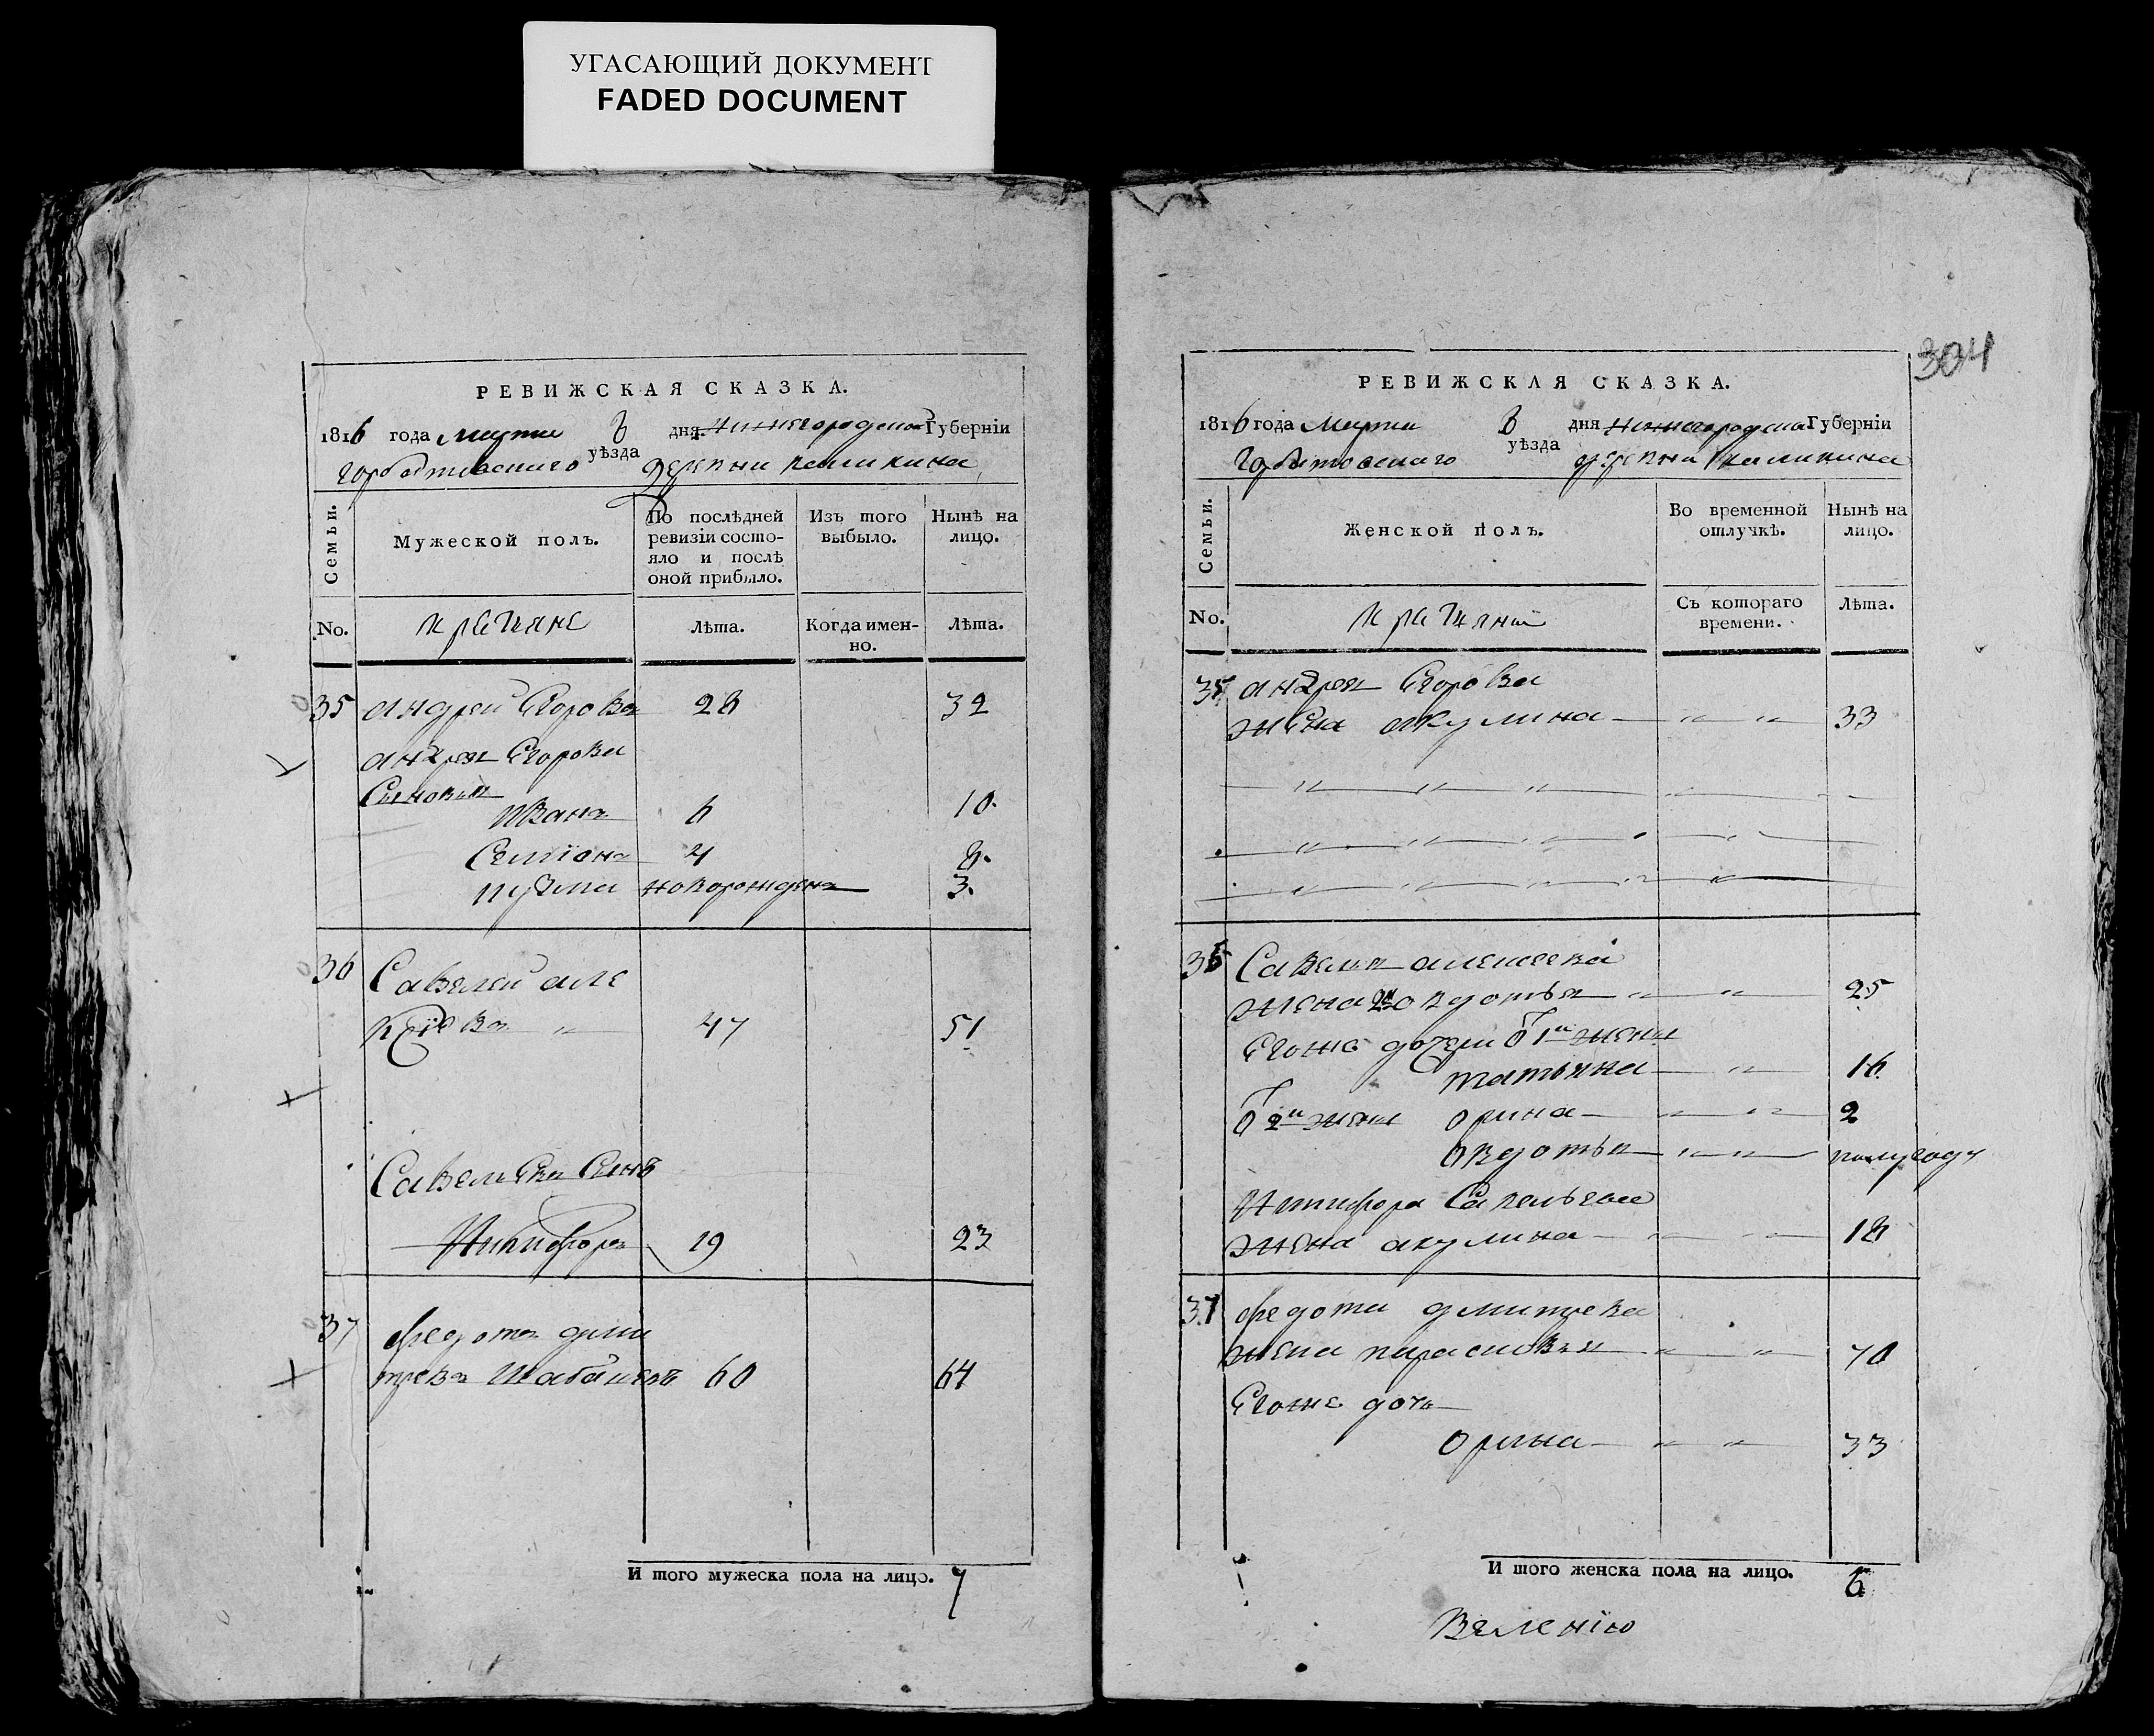 УГАСАЮЩИЙ ДОКУМЕНТ
FADED DOCUMENT
РЕВИЖСКАЯ СКАЗКА.
1816 года Марта дня Нижегородской Губерніи
Горбатовскаго уѣзда деревни
Семьи.
Мужеской полъ.
По послѣдней ревизіи состо-
яло и послѣ
оной прибыло.
Изъ того
выбыло.
Нынѣ на
лицо.
No.
крестьяне
Лѣта.
Когда имен-
но.
Лѣта.
35 андрей Егоровъ 28 32
андрея Егорова
Сыновья
Иванъ 6 10.
Семіонъ 4 8.
кузма новорожденъ 3.
36 Савелей але
ксіевъ 47 51
Савельева Сынъ
Никифоръ 19 23
37 федотъ дми
тревъ 60 64
И того мужеска пола на лицо. 7
304
РЕВИЖСКАЯ СКАЗКА.
1816 года Марта дня Нижегородской Губерніи
Горбатовскаго уѣзда деревни
Семьи.
Женской полъ.
Во временной
отлучкѣ.
Нынѣ на
лицо.
No.
Съ котораго
времени.
Лѣта.
35 андрея Егорова
жена акулина 33
36 Савелья алексеева
жена овдотья 25
Егоже дочери 1й жены
татьяна 16
2й жены орина 2
овдотья полугоду
Никифора Савельева
жена акулина 18
37 федота дмитрева
жена парасковья 70
Егоже дочь
орина 33
И того женска пола на лицо.